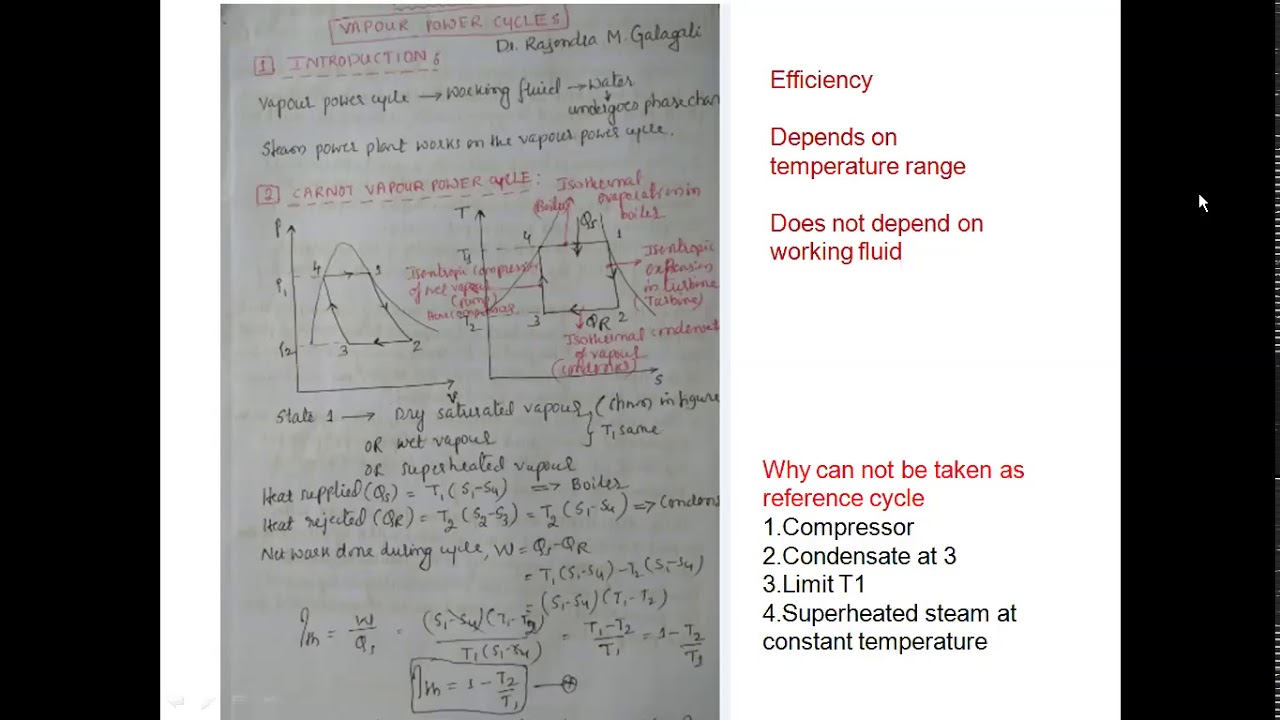 VAPOUR POWER CYCLES
Dr. Rajendra M. Galagali
1 INTRODUCTION:
Vapour power cycle → working fluid → Water
undergoes phase chan
Steam power plant works on the vapour power cycle.
2 CARNOT VAPOUR POWER CYCLE:
Isothermal
evaporation in
boiler
(Boiler)
P
P1
P2
4
1
3
2
V
T
T1
T2
4
Qs
1
3
QR
2
S
Isentropic compression
of wet vapour
(pump)
Isentropic
expansion
in turbine
(Turbine)
Isothermal condensat
of vapour
(condenser)
State 1 → Dry saturated vapour (shown in figure
OR wet vapour
T1 same
OR superheated vapour
Heat supplied (Qs) = T1 (S1-S4) => Boiler
Heat rejected (QR) = T2 (S2-S3) = T2 (S1-S4) => Condens
Net work done during cycle, W = Qs-QR
= T1 (S1-S4) - T2 (S1-S4)
= (S1-S4) (T1-T2)
ηth = W/Qs = (S1-S4)(T1-T2)/T1(S1-S4) = T1-T2/T1 = 1-T2/T1
ηth = 1-T2/T1
Efficiency
Depends on
temperature range
Does not depend on
working fluid
Why can not be taken as
reference cycle
1.Compressor
2.Condensate at 3
3.Limit T1
4.Superheated steam at
constant temperature